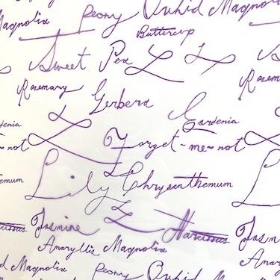 Peony Orchid Magnolia
Magnolia Buttercup
Sweet Pea
Rosemary
Gerbera
Gardenia
Forget-me-not
not
Lily Chrysanthemum
Jasmine Narcissus
Amaryllis Magnolia
Magnolia Peony Orchid